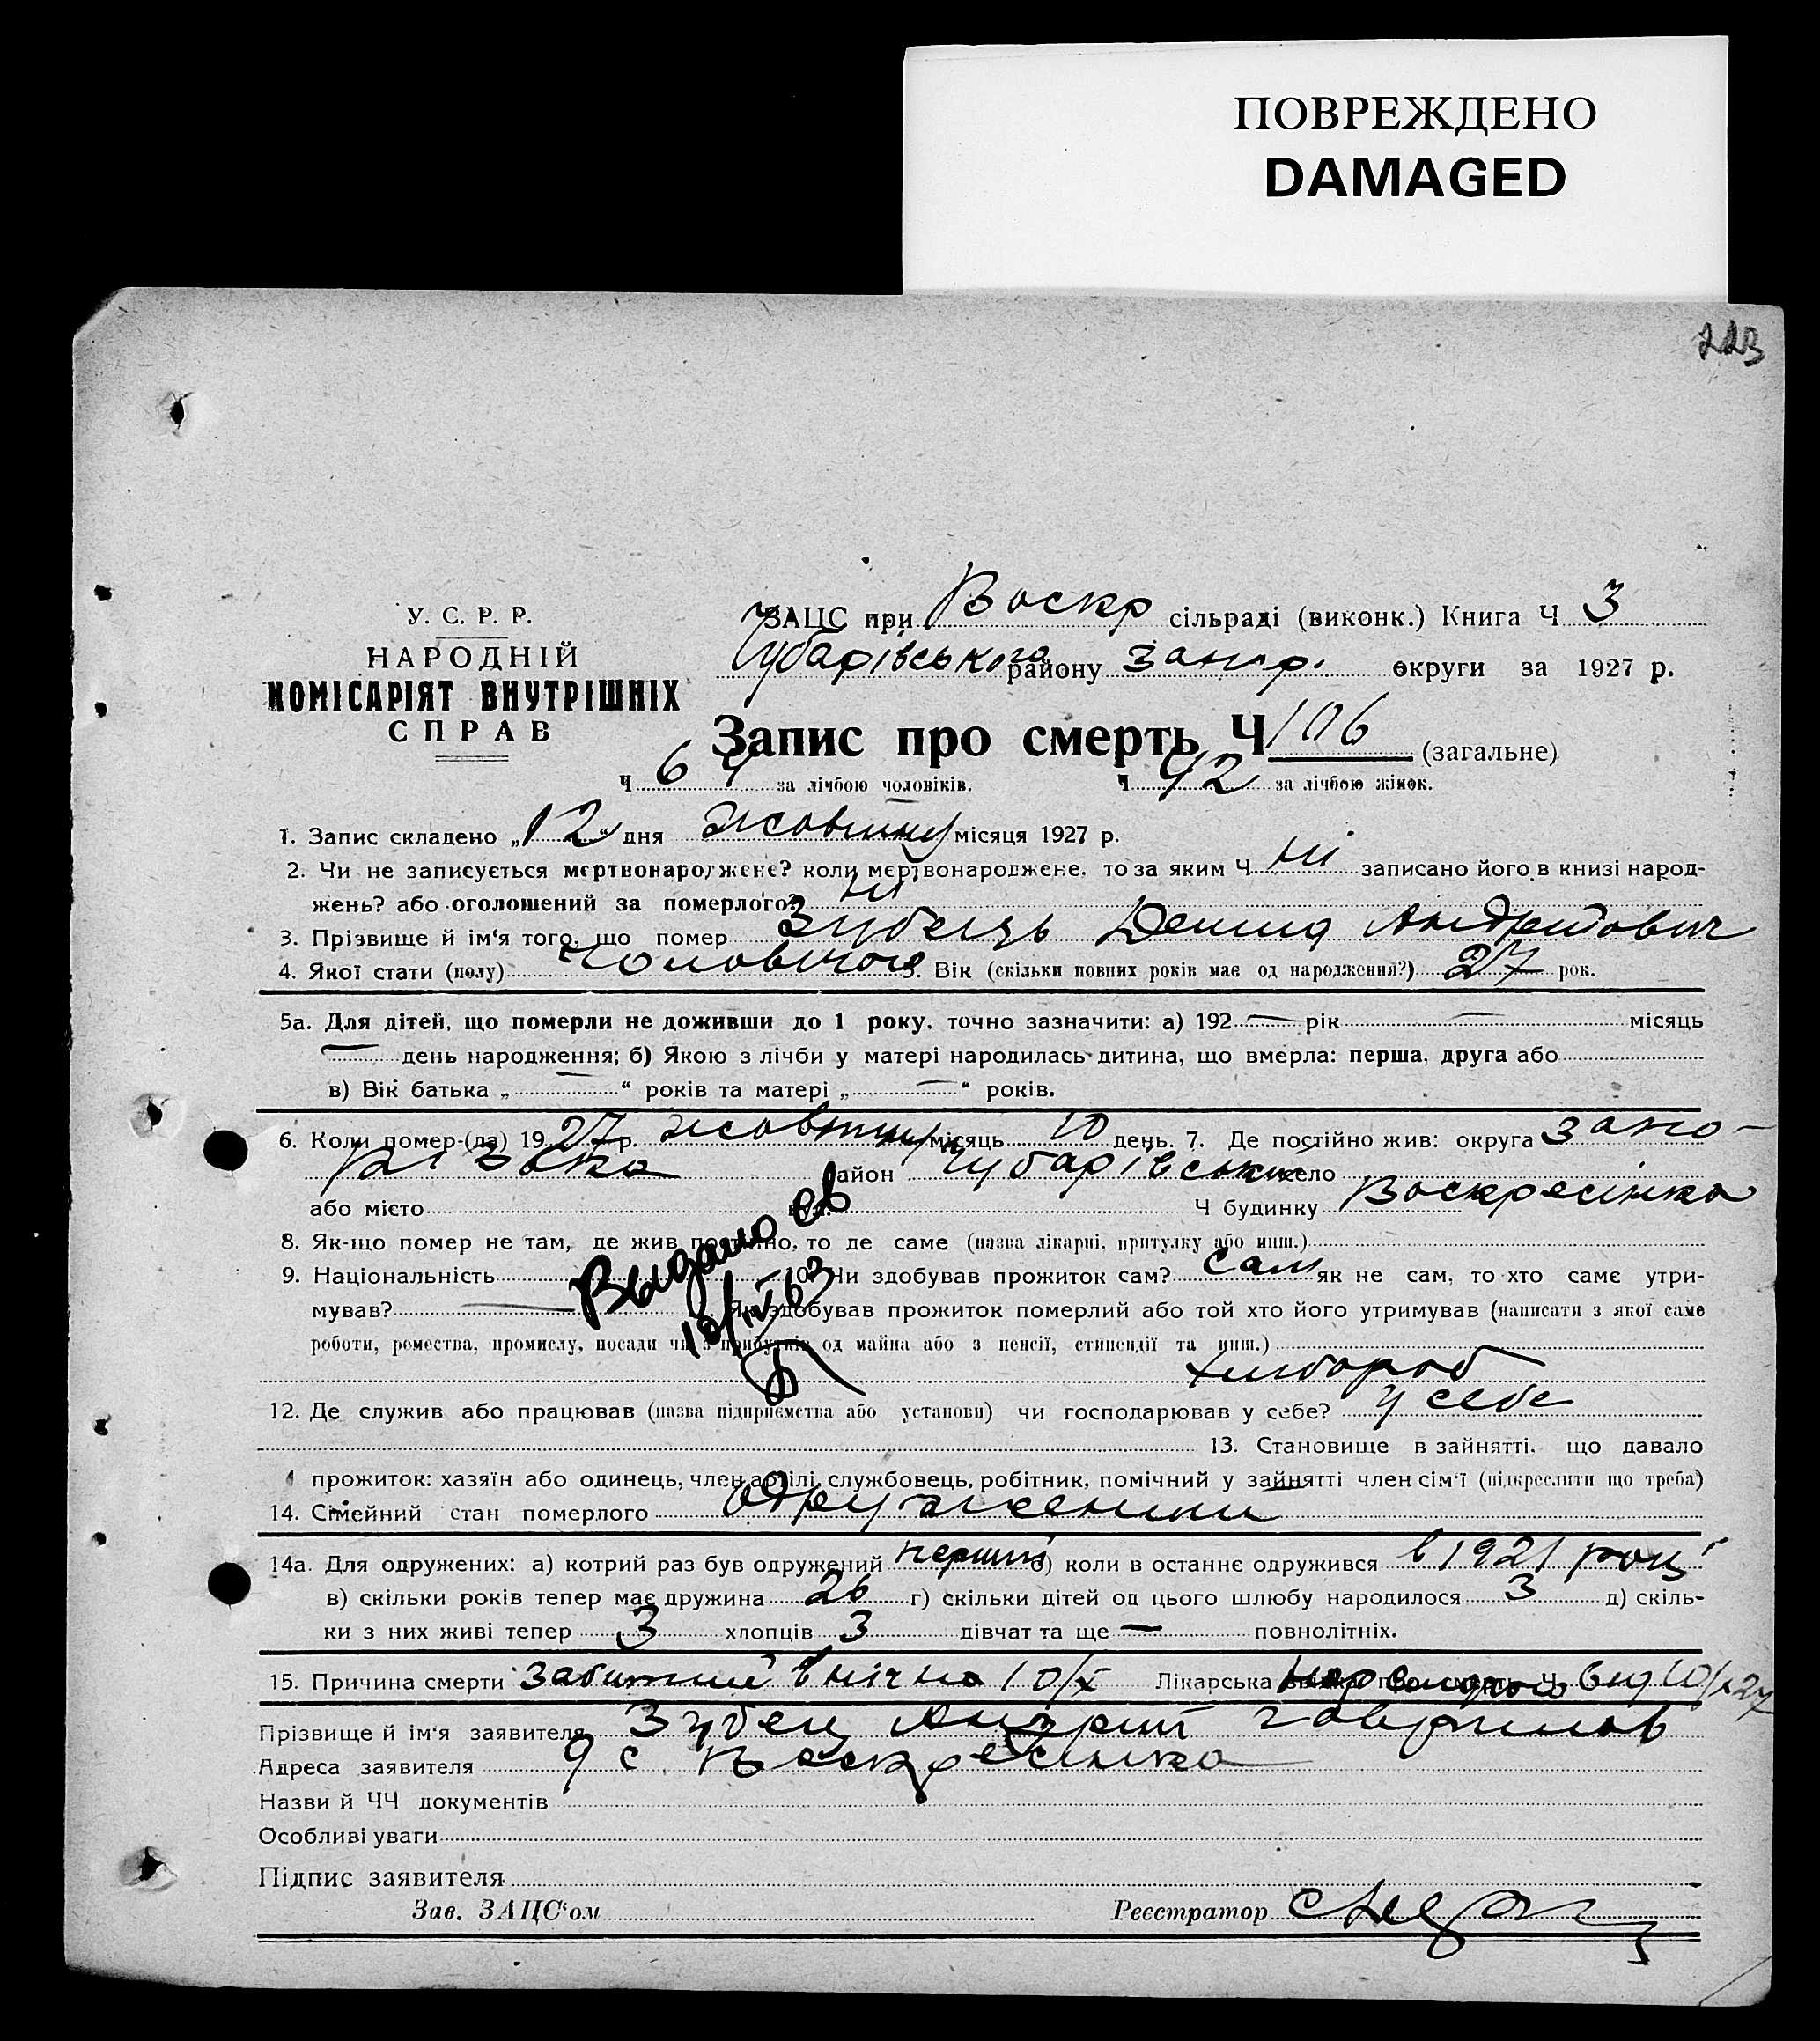 ПОВРЕЖДЕНО
DAMAGED
223
У. С. Р. Р.
НАРОДНІЙ
КОМІСАРІЯТ ВНУТРІШНІХ
СПРАВ
ЗАЦС при Воскр сільраді (виконк.) Книга Ч 3
Чубарівського району Запор. округи за 1927 р.
Запис про смерть Ч 106 (загальне)
Ч 64 за лічбою чоловіків. Ч 42 за лічбою жінок.
1. Запис складено „12“ дня жовтня місяця 1927 р.
2. Чи не записується мертвонароджене? коли мертвонароджене, то за яким Ч ні записано його в книзі народ-
жень? або оголошений за померлого? ні
3. Прізвище й ім'я того, що помер Зубець Демид Андрійович
4. Якої стати (полу) чоловічої 5. Вік (скільки повних років має од народження?) 27 рок.
5а. Для дітей, що померли не доживши до 1 року, точно зазначити: а) 192 — рік — місяць
— день народження; б) Якою з лічби у матері народилась дитина, що вмерла: перша, друга або
в) Вік батька „ — “ років та матері „ — “ років.
6. Коли помер-(ла) 1927 р. жовтня місяць 10 день. 7. Де постійно жив: округа Запо-
різька район Чубарівський село
або місто вул. Ч будинку Воскресінка
8. Як-що помер не там, де жив постійно, то де саме (назва лікарні, притулку або инш.)
9. Національність 10. Чи здобував прожиток сам? сам як не сам, то хто саме утри-
мував? — Як здобував прожиток померлий або той хто його утримував (написати з якої саме
роботи, ремества, промислу, посади чи з прибутків од майна або з пенсії, стипендії та инш.)
хлібороб
Выдано св
18/IV 63
12. Де служив або працював (назва підприємства або установи) чи господарював у себе? у себе
13. Становище в зайнятті, що давало
прожиток: хазяїн або одинець, член артілі, службовець, робітник, помічний у зайнятті член сім'ї (підкреслити що треба)
14. Сімейний стан померлого одружений
14а. Для одружених: а) котрий раз був одружений перший б) коли в останнє одружився в 1921 році
в) скільки років тепер має дружина 26 г) скільки дітей од цього шлюбу народилося 3 д) скіль-
ки з них живі тепер 3 хлопців 3 дівчат та ще — повнолітніх.
15. Причина смерти Забитий в ніч на 10/X Лікарська від 10/X 27
Прізвище й ім'я заявителя Зубец Андрий Гаврилов
Адреса заявителя с Воскресінка
Назви й ЧЧ документів
Особливі уваги
Підпис заявителя
Зав. ЗАЦС'ом Реєстратор